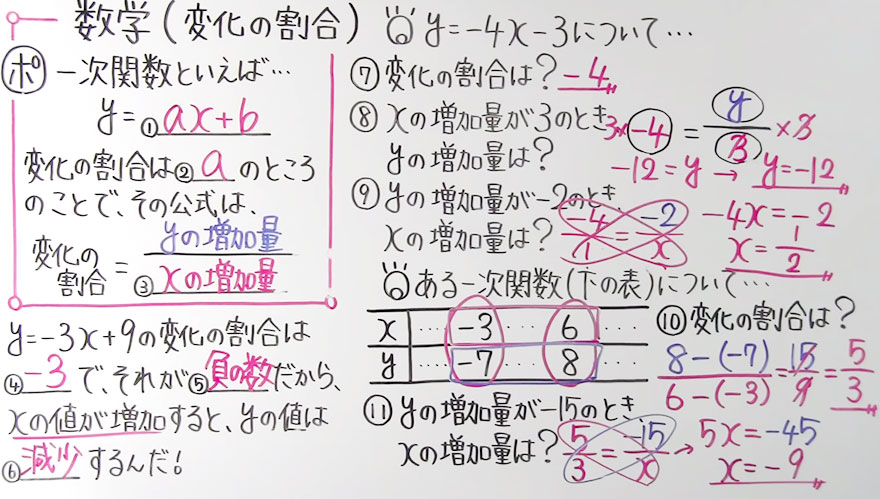 数学(変化の割合)
ポ 一次関数といえば…
y=①ax+b
変化の割合は②aのところ
のことで、その公式は、
変化の割合=yの増加量/③xの増加量
y=-3x+9の変化の割合は
④-3で、それが⑤負の数だから、
xの値が増加すると、yの値は
⑥減少するんだ!
y=-4x-3について…
⑦変化の割合は?-4
⑧xの増加量が3のとき
yの増加量は?
3×-4=y/3×3
-12=y→y=-12
⑨yの増加量が-2のとき、
xの増加量は?
-4/1=-2/x
-4x=-2
x=1/2
ある一次関数(下の表)について…
x … -3 … 6 …
y … -7 … 8 …
⑩変化の割合は?
8-(-7)/6-(-3)=15/9=5/3
⑪yの増加量が-15のとき
xの増加量は?
5/3=-15/x→5x=-45
x=-9